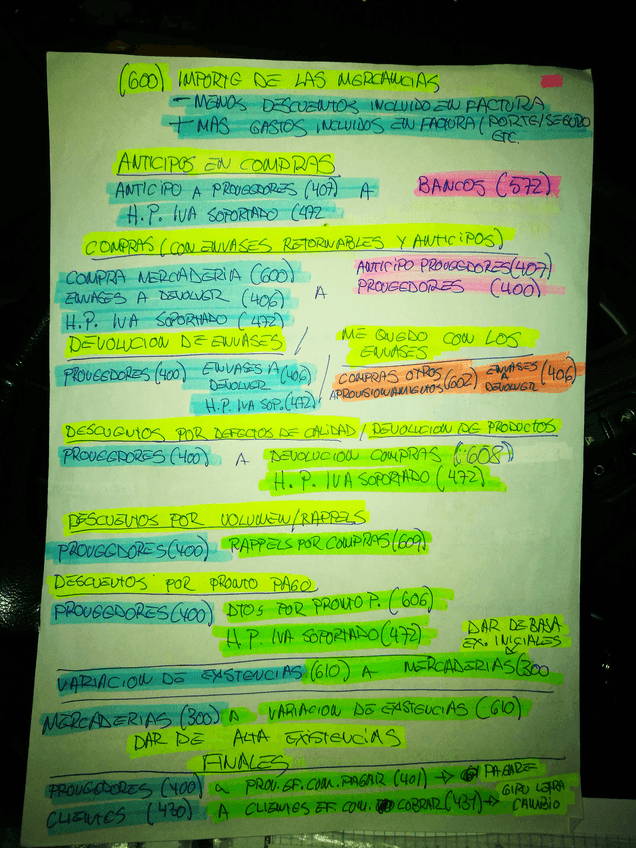 (600) IMPORTE DE LAS MERCANCIAS
- MENOS DESCUENTOS INCLUIDO EN FACTURA
+ MAS GASTOS INCLUIDOS EN FACTURA (PORTE/SEGURO
ETC.
ANTICIPOS EN COMPRAS
ANTICIPO A PROVEEDORES (407) A BANCOS (572)
H.P. IVA SOPORTADO (472
COMPRAS (CON ENVASES RETORNABLES Y ANTICIPOS)
COMPRA MERCADERIA (600) ANTICIPO PROVEEDORES (407)
ENVASES A DEVOLVER (406) A PROVEEDORES (400)
H.P. IVA SOPORTADO (472)
DEVOLUCION DE ENVASES / ME QUEDO CON LOS
ENVASES
PROVEEDORES (400) ENVASES A DEVOLVER (406)
H.P. IVA SOP. (472)
COMPRAS OTROS APROVISIONAMIENTOS (602) ENVASES A DEVOLVER (406)
DESCUENTOS POR DEFECTOS DE CALIDAD / DEVOLUCION DE PRODUCTOS
PROVEEDORES (400) A DEVOLUCION COMPRAS (608)
H.P. IVA SOPORTADO (472)
DESCUENTOS POR VOLUMEN/RAPPELS
PROVEEDORES (400) RAPPELS POR COMPRAS (609)
DESCUENTOS POR PRONTO PAGO
PROVEEDORES (400) DTOS POR PRONTO P. (606)
H.P. IVA SOPORTADO (472)
DAR DE BAJA
EX. INICIALES
VARIACION DE EXISTENCIAS (610) A MERCADERIAS (300
MERCADERIAS (300) A VARIACION DE EXISTENCIAS (610)
DAR DE ALTA EXISTENCIAS
FINALES
PROVEEDORES (400) a PROV. EF. COM. PAGAR (401) → PAGARE
CLIENTES (430) A CLIENTES EF COM. COBRAR (431) → GIRO LETRA
CAMBIO